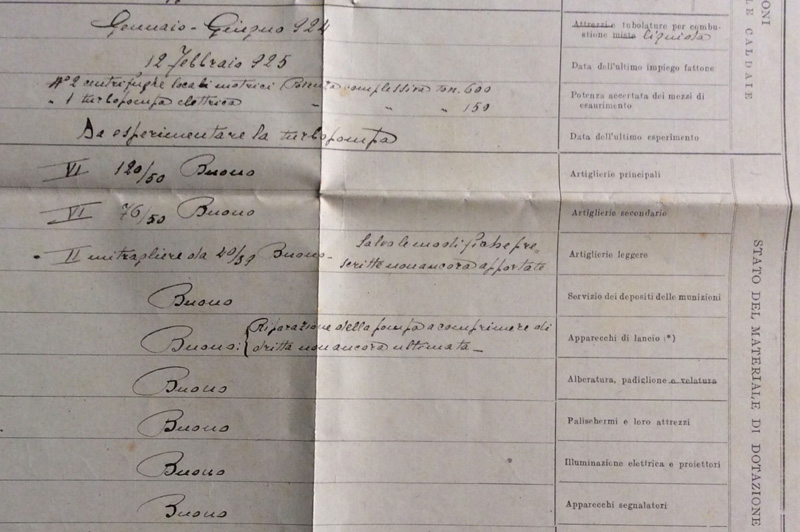 Gennaio - Giugno 924
12 Febbraio 925
N° 2 centrifughe locali motrici Potenza complessiva ton. 600
" 1 turbopompa elettrica " " " 150
Da esperimentare la turbopompa
VI 120/50 Buono
VI 76/50 Buono
II mitragliere da 40/39 Buono - Salvo le modifiche pre
scritte non ancora apportate
Buono
Buono: Riparazione della pompa a comprimere di
dritta non ancora ultimata
Buono
Buono
Buono
Buono
Attrezzi e tubolature per combu-
stione mista liquida
Data dell'ultimo impiego fattone
Potenza accertata dei mezzi di
esaurimento
Data dell'ultimo esperimento
Artiglierie principali
Artiglierie secondarie
Artiglierie leggere
Servizio dei depositi delle munizioni
Apparecchi di lancio (*)
Alberatura, padiglione e velatura
Palischermi e loro attrezzi
Illuminazione elettrica e proiettori
Apparecchi segnalatori
LE CALDAIE
ONI
STATO DEL MATERIALE DI DOTAZIONE